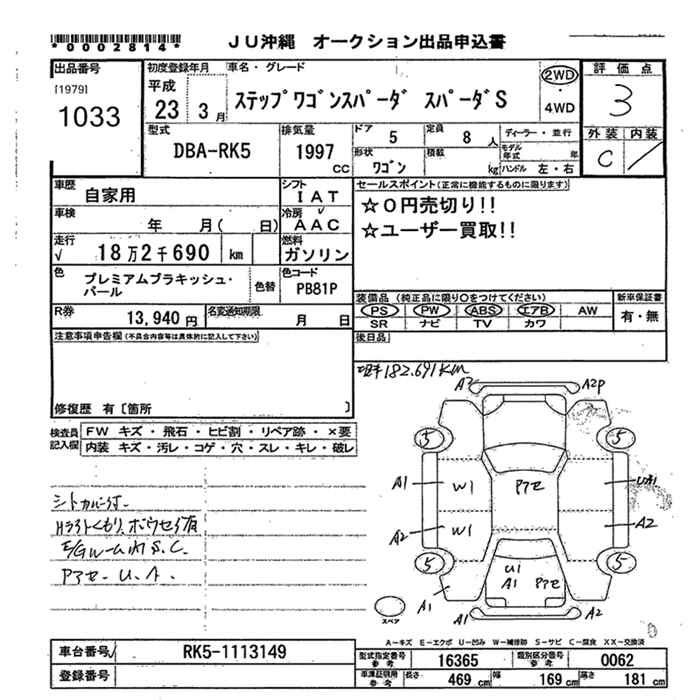 *0002814*
JU沖縄 オークション出品申込書
出品番号
[1979]
1033
初度登録年月
平成
23 3月
車名・グレード
ステップワゴンスパーダ スパーダS
2WD
・
4WD
評価点
3
外装 内装
C /
型式
DBA-RK5
排気量
1997
CC
ドア
5
定員
8人
形状
ワゴン
積載
kg
ディーラー・並行
モデル年式 年
ハンドル 左・右
車歴
自家用
シフト
IAT
車検
年 月( 日)
冷房
AAC
走行
√ 18万2千690 km
燃料
ガソリン
色
プレミアムブラキッシュ・パール
色替
色コード
PB81P
R券
13,940円
名変通知期限
月 日
セールスポイント(正常に機能するものに限ります)
☆0円売切り!!
☆ユーザー買取!!
装備品 (純正品に限り○をつけてください)
PS PW ABS エアB AW
SR ナビ TV カワ
新車保証書
有・無
後日品
注意事項申告欄(不具合内容等は具体的に記入して下さい)
修復歴 有〔箇所 〕
検査員記入欄
FW キズ・飛石・ヒビ割・リペア跡・×要
内装 キズ・汚レ・コゲ・穴・スレ・キレ・破レ
182.691KM
A2 A2P
5 5
A1 W1 アセ UA1
A2 W1 A2
5 5
U1
A1 アセ
A1 A1 A2
スペア
シートカバー付
S.C.
アセ U.A.
A-キズ E-エクボ U-凹み W-補修跡 S-サビ C-腐食 XX-交換済
車台番号
RK5-1113149
登録番号
型式指定番号
参考
16365
類別区分番号
参考
0062
車庫証明用
参考
長さ 469cm 幅 169cm 高さ 181cm